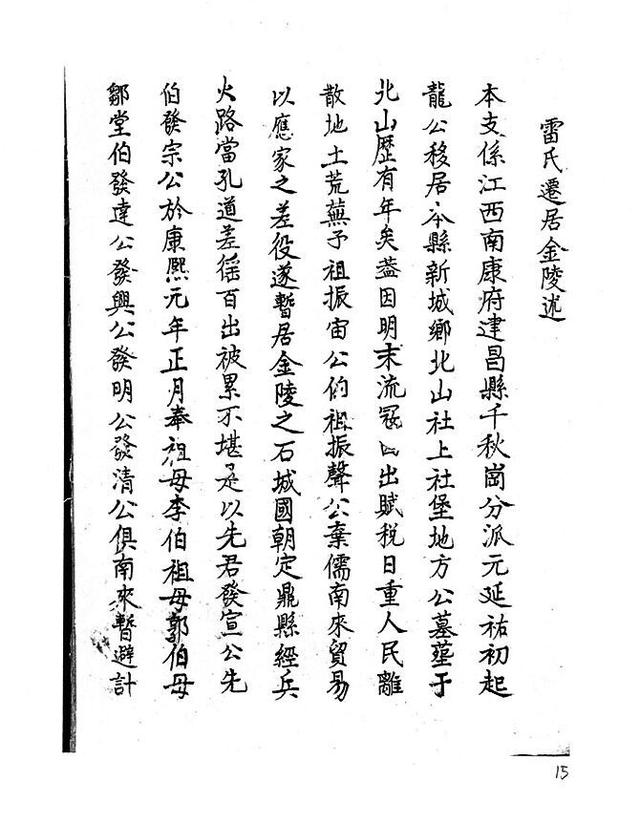 雷氏遷居金陵述
本支係江西南康府建昌縣千秋崗分派元延祐初起
龍公移居本縣新城鄉北山社上社堡地方公墓塟于
北山歷有年矣葢因明末流冦四出賦稅日重人民離
散地土荒蕪予祖振宙公伯祖振聲公棄儒南來貿易
以應家之差役遂暫居金陵之石城國朝定鼎縣經兵
火路當孔道差徭百出被累不堪是以先君發宣公先
伯發宗公於康熙元年正月奉祖母李伯祖母郭伯母
鄒堂伯發達公發興公發明公發清公俱南來暫避計
15